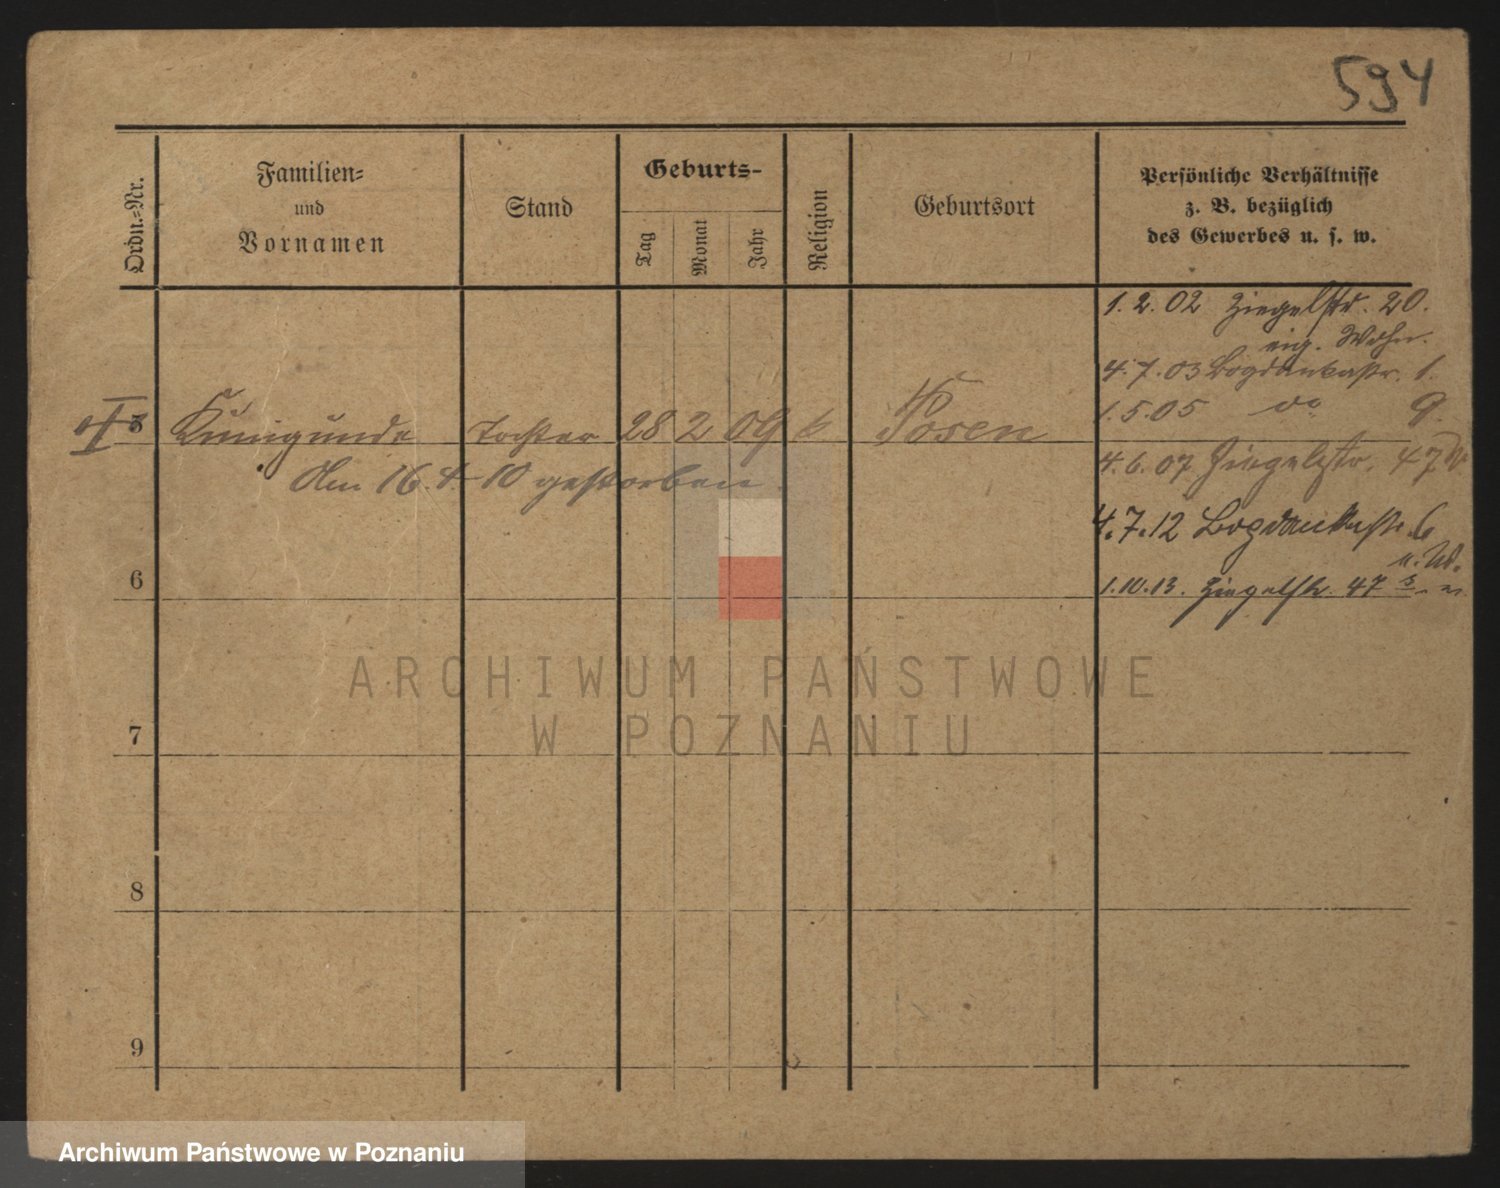 594
Ordn.-Nr.
Familien-
und
Vornamen
Stand
Geburts-
Tag
Monat
Jahr
Religion
Geburtsort
Persönliche Verhältnisse
z. B. bezüglich
des Gewerbes u. s. w.
1.2.02 Ziegelstr. 20.
eig. Wohn.
4.7.03 Bogdankastr. 1.
1.5.05 do 9.
5 Kunigunde Tochter 28 2 09 k Posen
Am 16.4.10 gestorben.
4.6.07 Ziegelstr. 47
4.7.12 Bogdankastr. 6
6
1.10.13. Ziegelstr. 47
ARCHIWUM PAŃSTWOWE
W POZNANIU
7
8
9
Archiwum Państwowe w Poznaniu